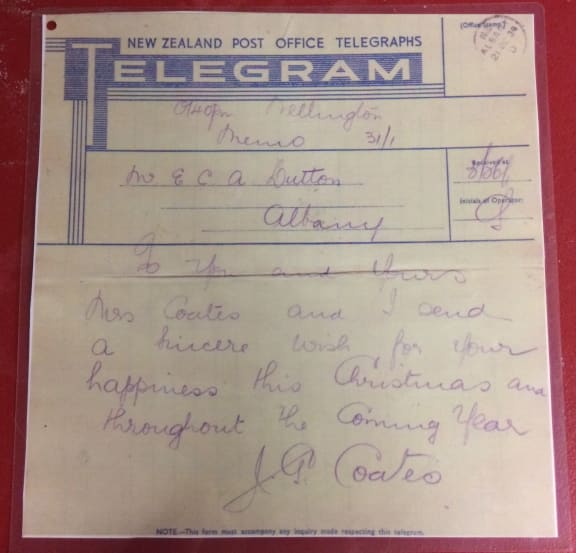 (Office Stamp.)
NEW ZEALAND POST OFFICE TELEGRAPHS
TELEGRAM
Wellington
Memo 31/1
Mr E C A Dutton
Albany
Received at
Initials of Operator:
To You and Yours
Mrs Coates and I send
a sincere wish for your
happiness this Christmas and
throughout the Coming Year
J. G. Coates
NOTE.—This form must accompany any inquiry made respecting this telegram.